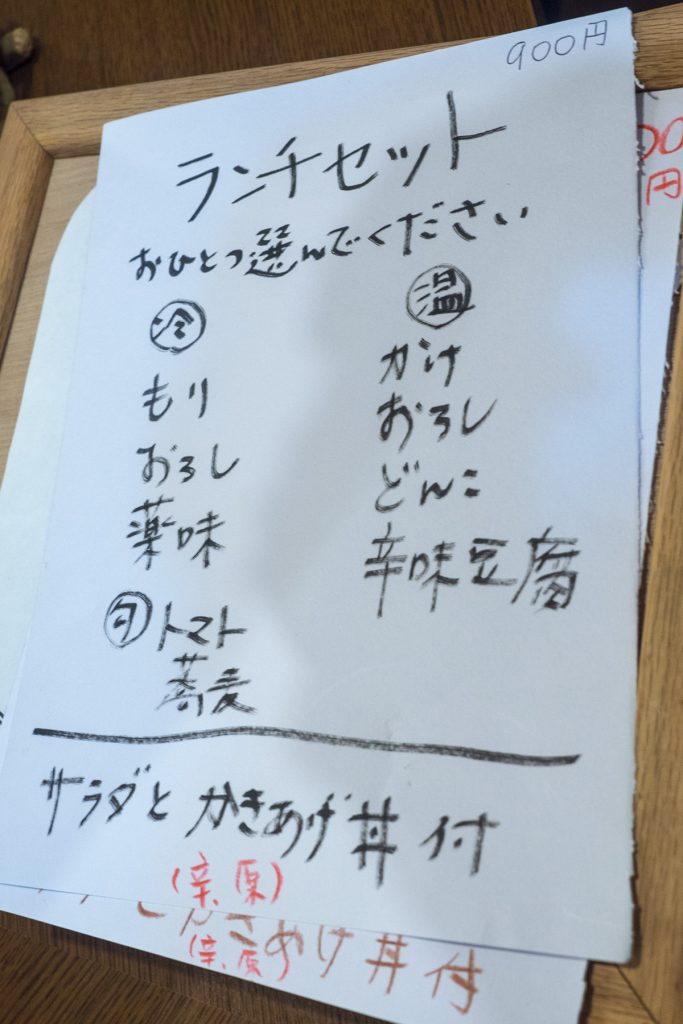 900円
ランチセット
おひとつ選んでください
冷
もり
おろし
薬味
旬トマト
蕎麦
温
かけ
おろし
どんこ
辛味豆腐
サラダとかきあげ丼付
00
円
きあげ丼付